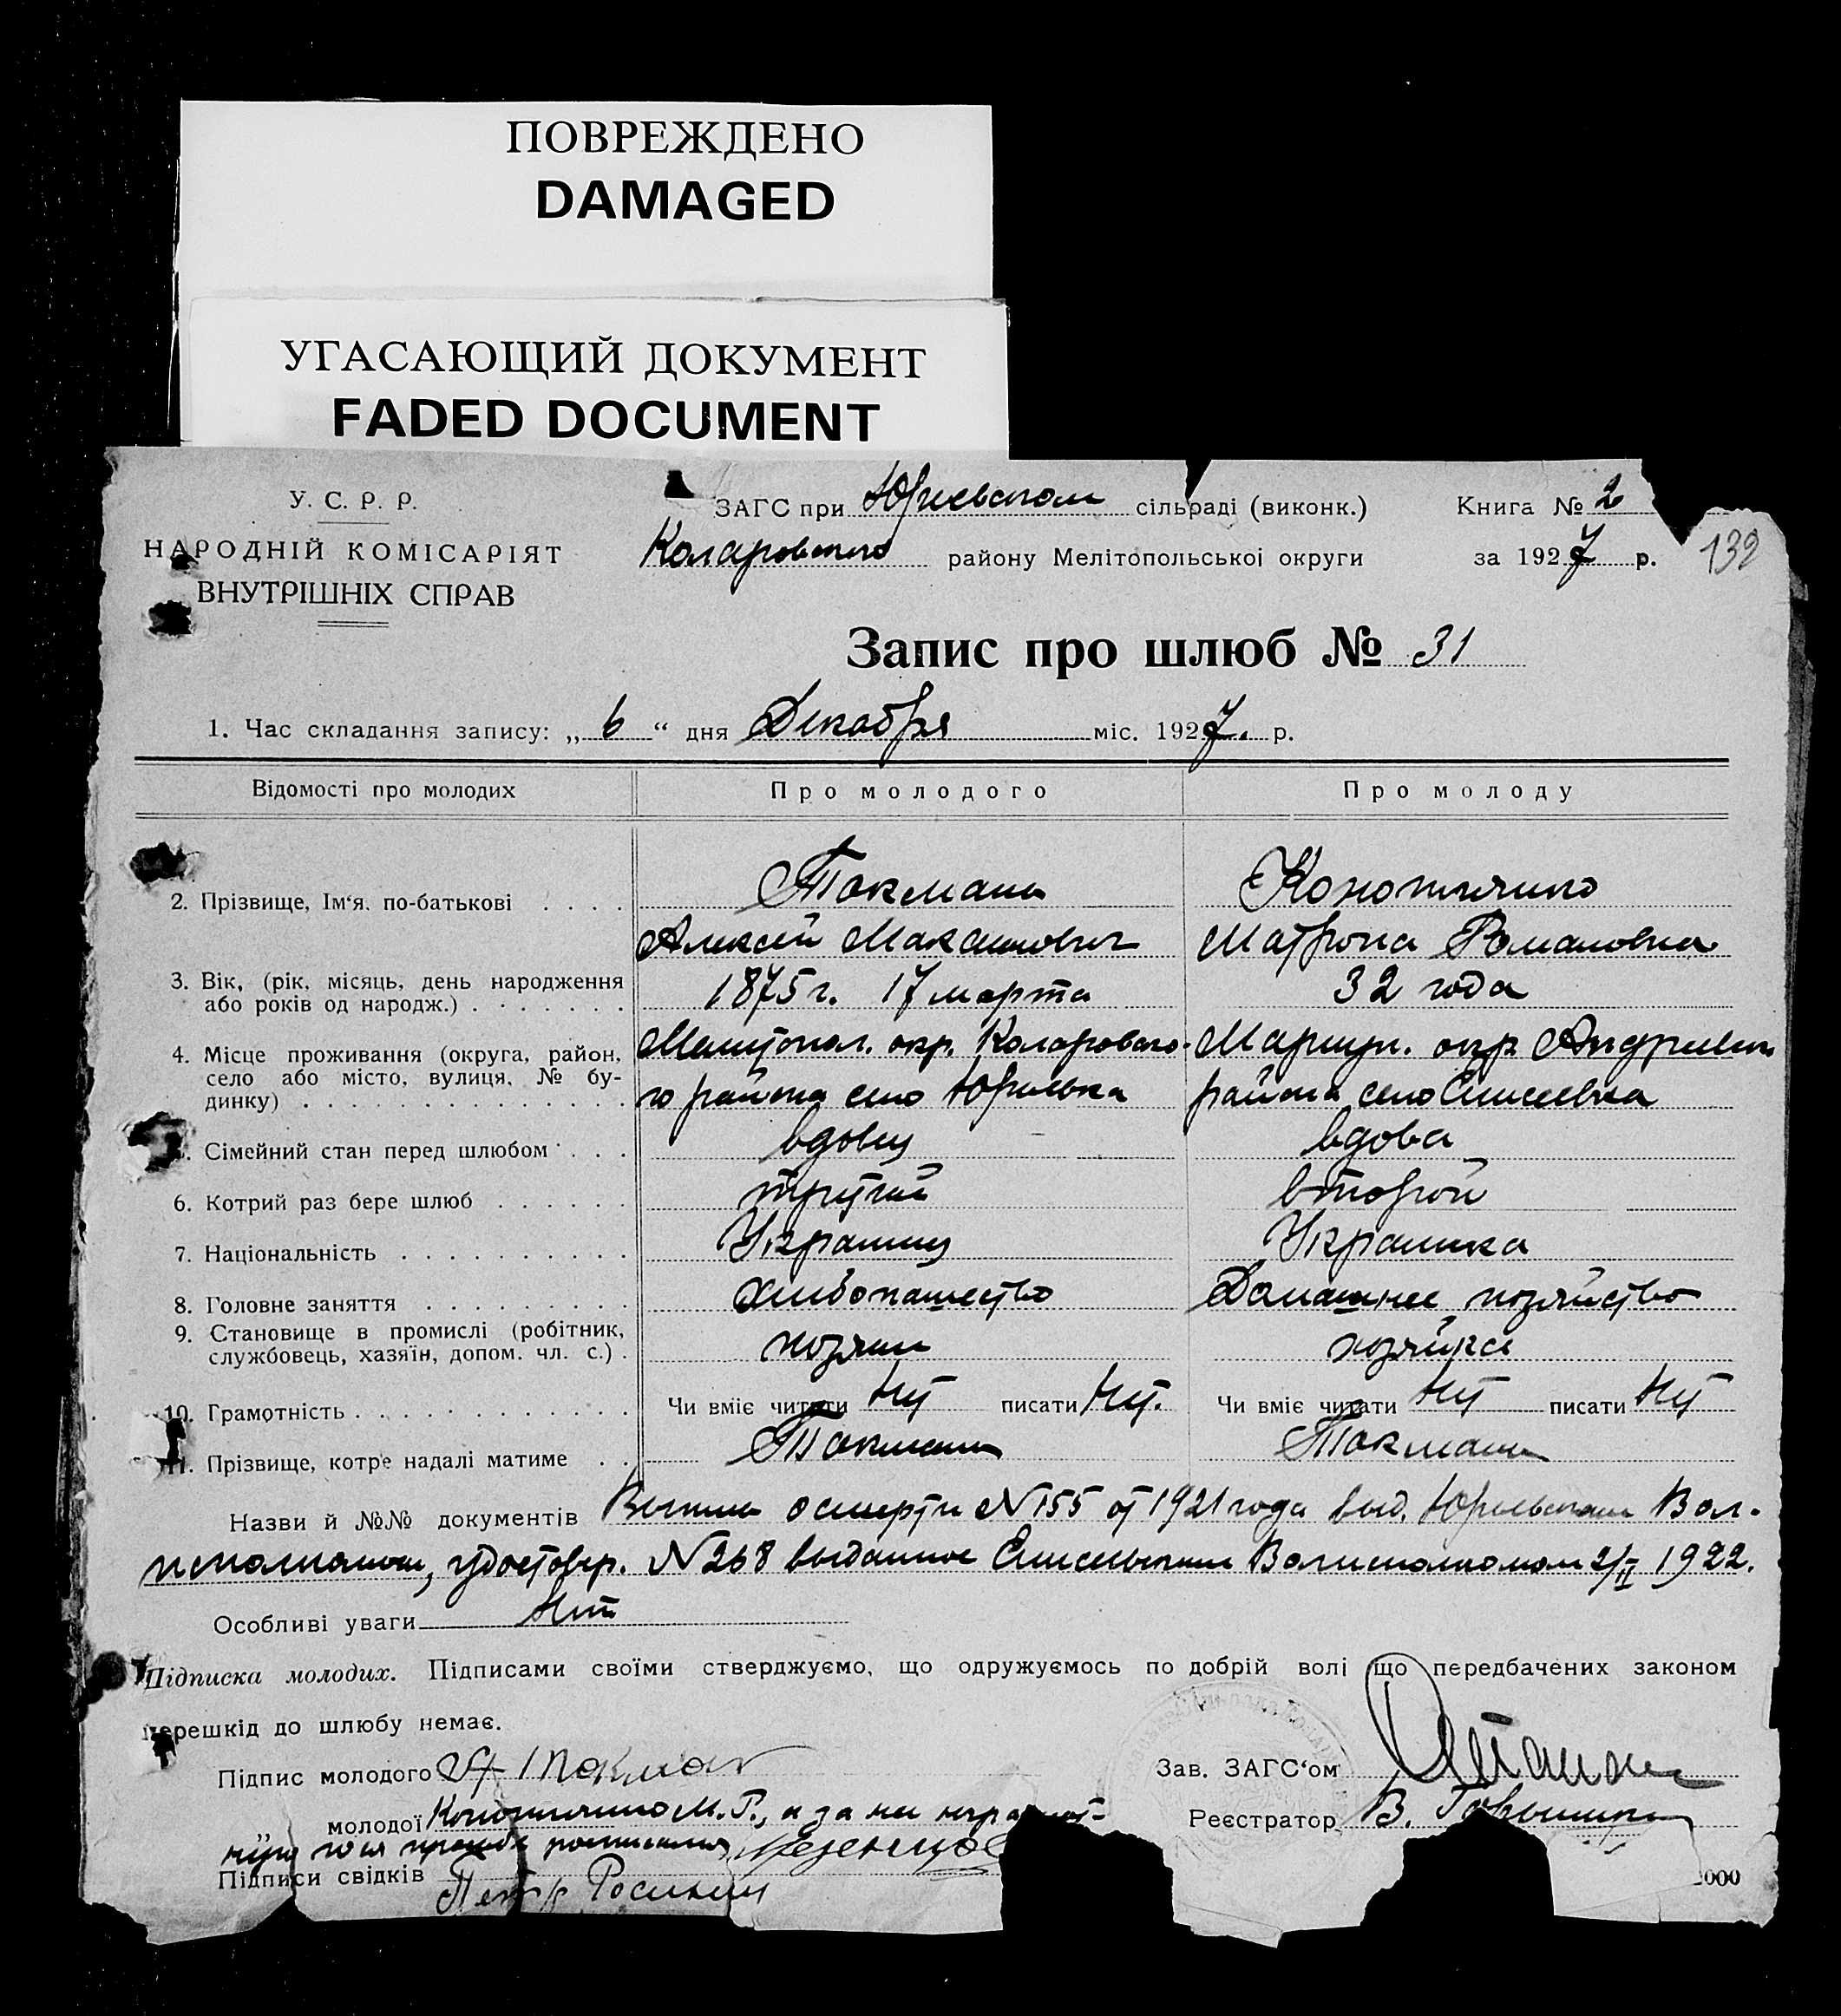 ПОВРЕЖДЕНО
DAMAGED
УГАСАЮЩИЙ ДОКУМЕНТ
FADED DOCUMENT
У. С. Р. Р.
НАРОДНІЙ КОМІСАРІЯТ
ВНУТРІШНІХ СПРАВ
ЗАГС при Юрьевском сільраді (виконк.) Книга № 2
Коларовского району Мелітопольської округи за 1927 р.
132
Запис про шлюб № 31
1. Час складання запису: „ 6 “ дня Декабря міс. 1927. р.
Відомості про молодих Про молодого Про молоду
2. Прізвище, Ім‘я, по-батькові . . . . Токмань
Алексей Максимович Матрона Романовна
3. Вік, (рік, місяць, день народження
або років од народж.) . . . . . . . 1875 г. 17 марта 32 года
4. Місце проживання (округа, район,
село або місто, вулиця, № бу-
динку) . . . . . . . . . . . . . .
Мелитопол. окр. Коларовско-
го района село Юрьевка
Мариуп. окр.
района село Елисеевка
. Сімейний стан перед шлюбом . . . вдовец вдова
6. Котрий раз бере шлюб . . . . . . третий второй
7. Національність . . . . . . . . . . Украинец Украинка
8. Головне заняття . . . . . . . . . Хлебопашество Домашнее хозяйство
9. Становище в промислі (робітник,
службовець, хазяїн, допом. чл. с.) . хозяин хозяйка
10. Грамотність . . . . . . . . . . . . Чи вміє читати Нет писати Нет. Чи вміє читати Нет писати Нет
11. Прізвище, котре надалі матиме . . Токмань Токмань
Назви й №№ документів о смерти N 155 от 1921 года выд. Юрьевским Вол-
исполкомом, удостовер. N 268 выданное Елисеевским Волисполкомом 2/II 1922.
Особливі уваги Нет
Підписка молодих. Підписами своїми стверджуємо, що одружуємось по добрій волі що передбачених законом
перешкід до шлюбу немає.
Підпис молодого А Токмань
Зав. ЗАГС‘ом
„ молодої М. Р., а за не неграмот-
Реєстратор В.
ную по ея просьбе росписался
Підписи свідків
Петр
000